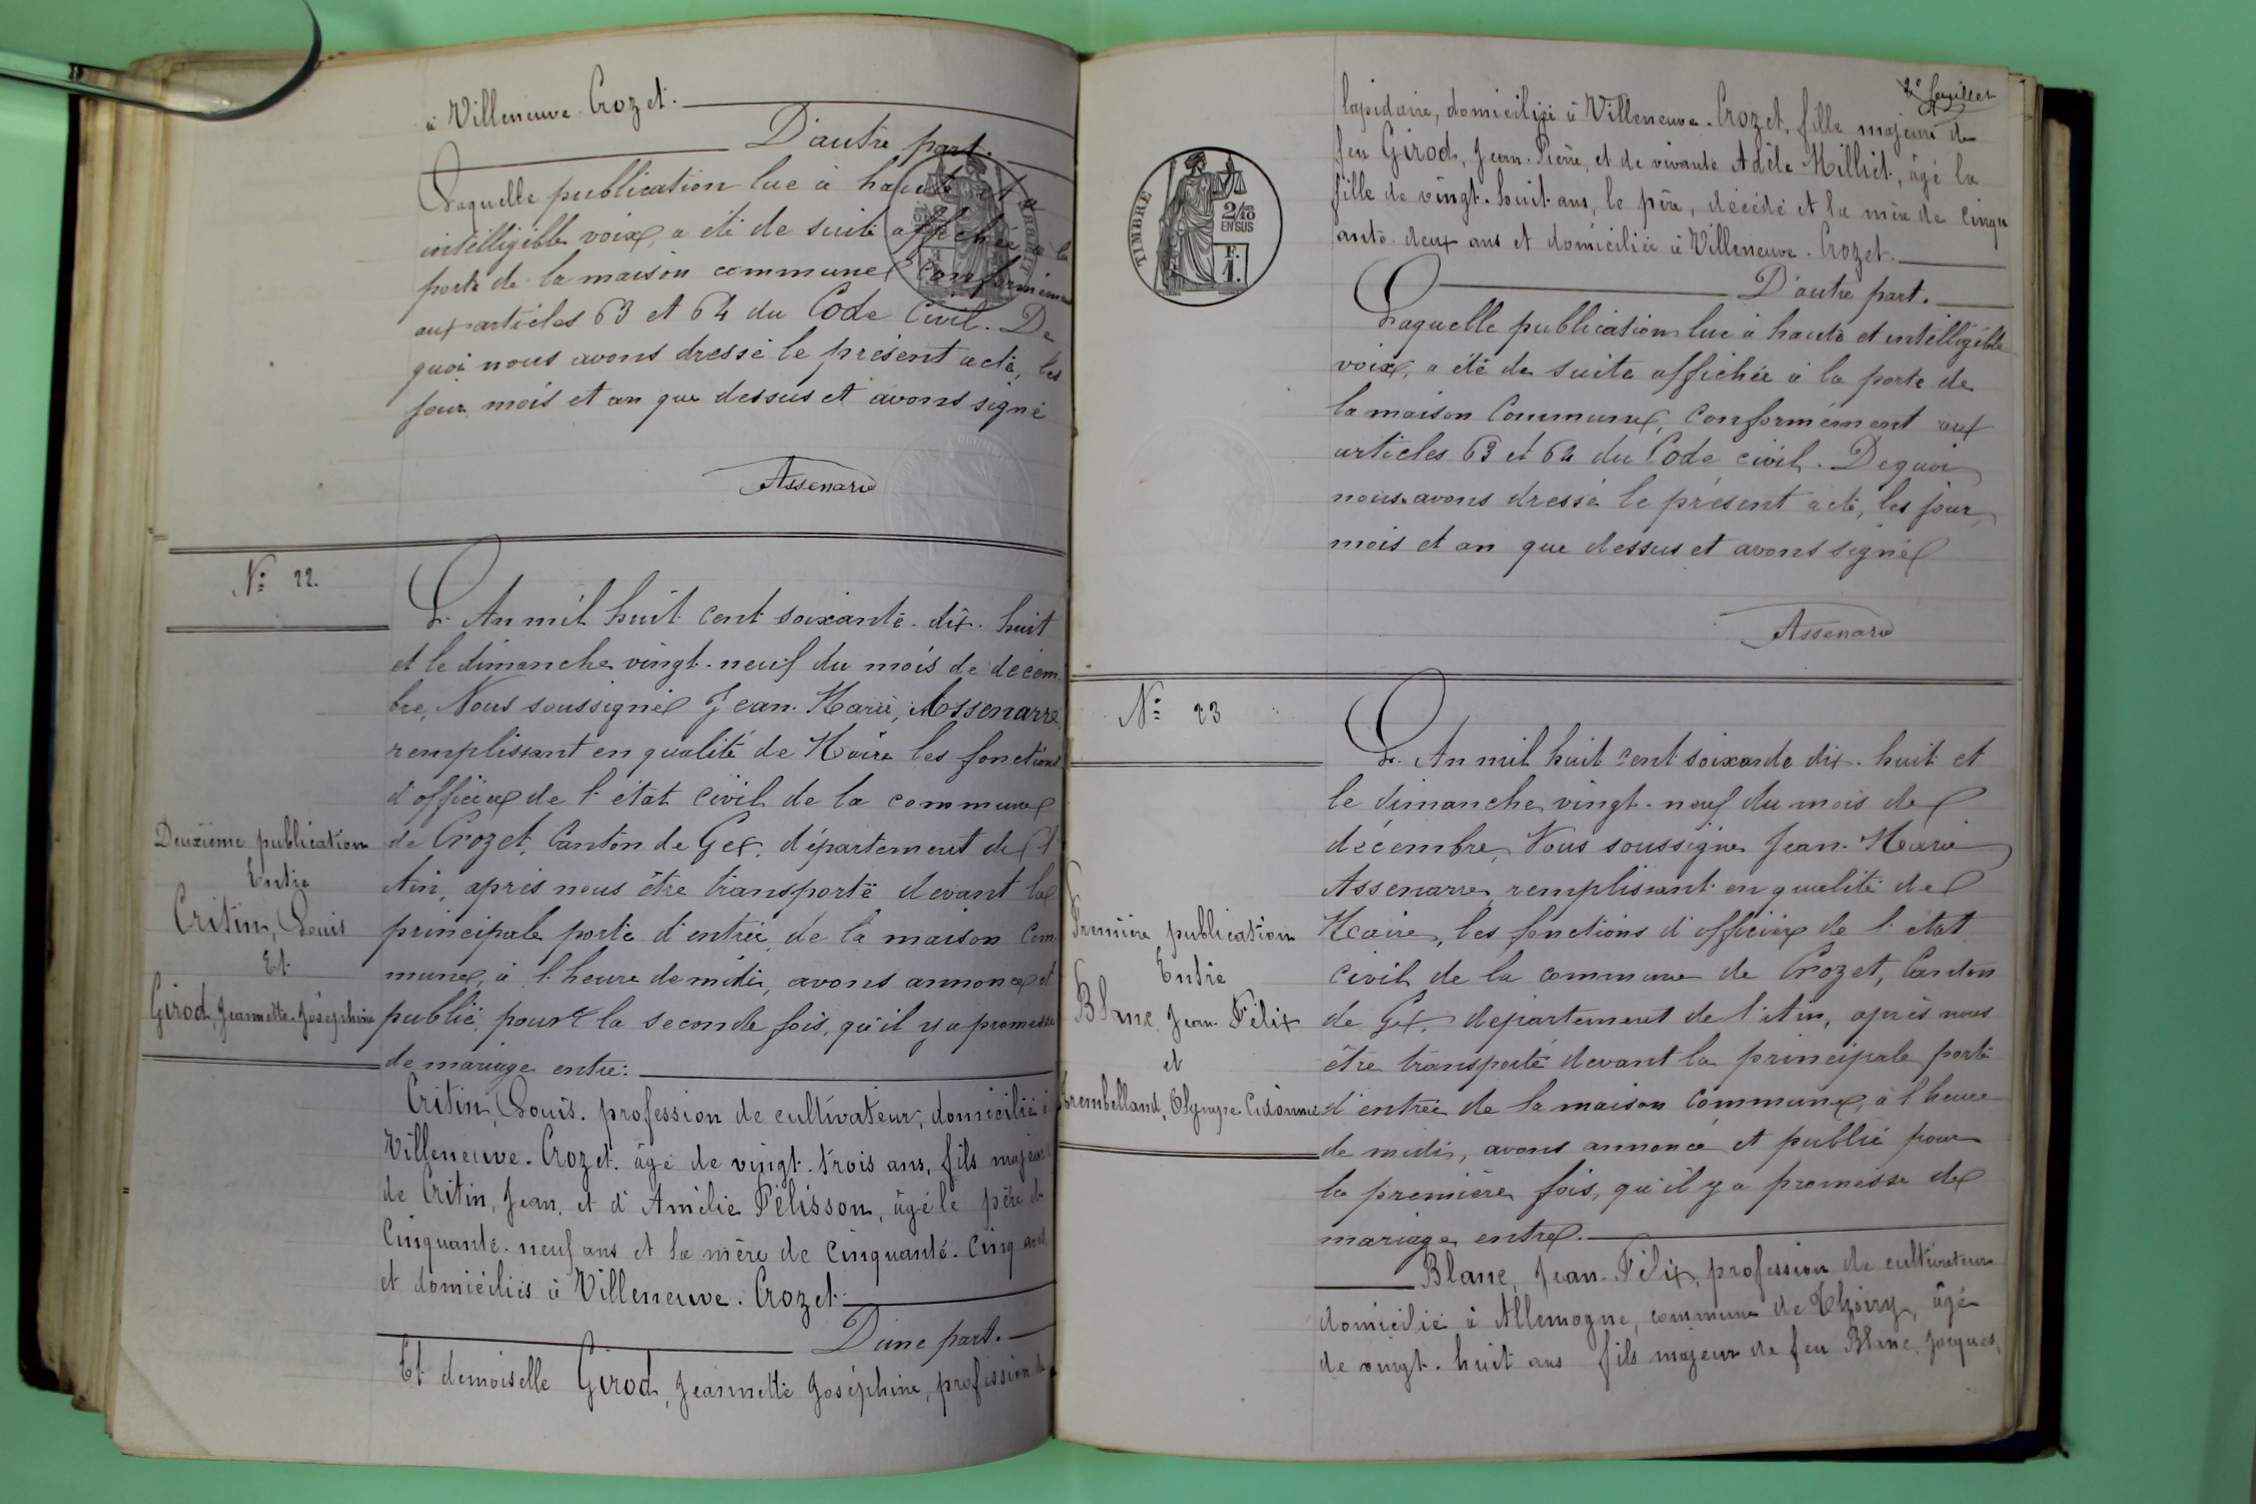 à Villeneuve-Crozet.
D'autre part.
Laquelle publication lue à haute et
intelligible voix, a été de suite affichée à la
porte de la maison commune conformément
aux articles 63 et 64 du Code Civil. De
quoi nous avons dressé le présent acte, les
jour mois et an que dessus et avons signé
Assenarre
N° 22.
L'An mil huit cent soixante-dix-huit
et le dimanche vingt-neuf du mois de décem
bre, Nous soussigné Jean-Marie, Assenarre
remplissant en qualité de Maire les fonctions
d'officier de l'état civil de la commune
de Crozet, Canton de Gex, département de l'
Ain, après nous être transporté devant la
principale porte d'entrée de la maison Com
mune, à l'heure de midi, avons annoncé et
publié, pour la seconde fois, qu'il y a promesse
de mariage entre:
Deuxième publication
Entre
Critin, Louis
Et
Girod, Jeannette-Joséphine
Critin, Louis. profession de cultivateur, domicilié à
Villeneuve-Crozet. âgé de vingt-trois ans, fils majeur
de Critin, Jean, et d'Amélie Pélisson, âgé le père de
Cinquante-neuf ans et la mère de Cinquante-Cinq ans
et domiciliés à Villeneuve-Crozet.
D'une part.
Et demoiselle Girod, Jeannette Joséphine, profession de
2e feuillet
TIMBRE
2/10 EN SUS
F.
1.
lapidaire, domiciliée à Villeneuve-Crozet, fille majeure de
feu Girod, Jean-Pierre, et de vivante Adèle Milliet, âgé la
fille de vingt-huit ans, le père, décédé et la mère de Cinqu
ante-deux ans et domiciliée à Villeneuve-Crozet.
D'autre part.
Laquelle publication lue à haute et intelligible
voix, a été de suite affichée à la porte de
la maison Commune, conformément aux
articles 63 et 64 du Code civil. De quoi
nous avons dressé le présent acte, les jour,
mois et an que dessus et avons signé
Assenarre
N° 23
L'An mil huit cent soixante dix-huit et
le dimanche vingt-neuf du mois de
décembre, Nous soussigné Jean-Marie
Assenarre, remplissant en qualité de
Maire, les fonctions d'officier de l'état
civil de la commune de Crozet, Canton
de Gex, département de l'Ain, après nous
être transporté devant la principale porte
d'entrée de la maison Commune, à l'heure
de midi, avons annoncé et publié pour
la première fois, qu'il y a promesse de
mariage entre.
Première publication
Entre
Blanc, Jean-Félix
et
Trembelland, Olympe Cidonnie
Blanc, Jean-Félix, profession de cultivateur
domicilié à Allemogne, commune de Thoiry, âgé
de vingt-huit ans fils majeur de feu Blanc, Jacques,